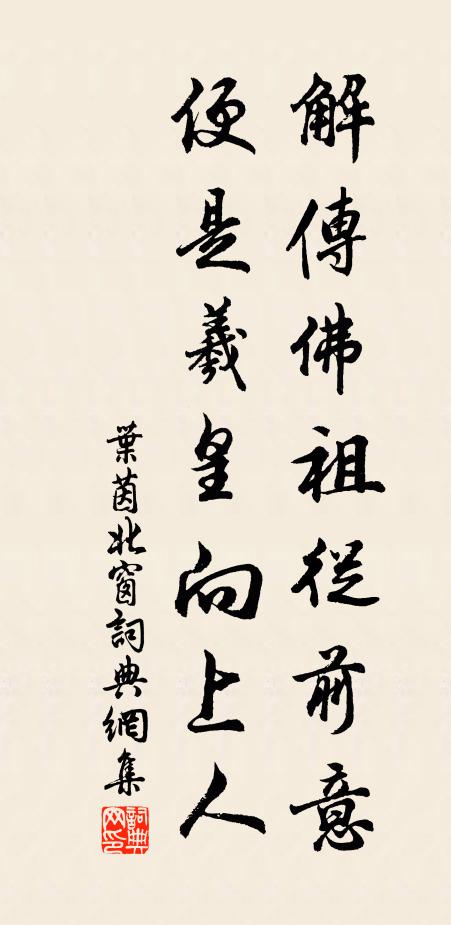 解傳佛祖從前意
便是羲皇向上人
葉茵北窗詞典網集
詞典網印